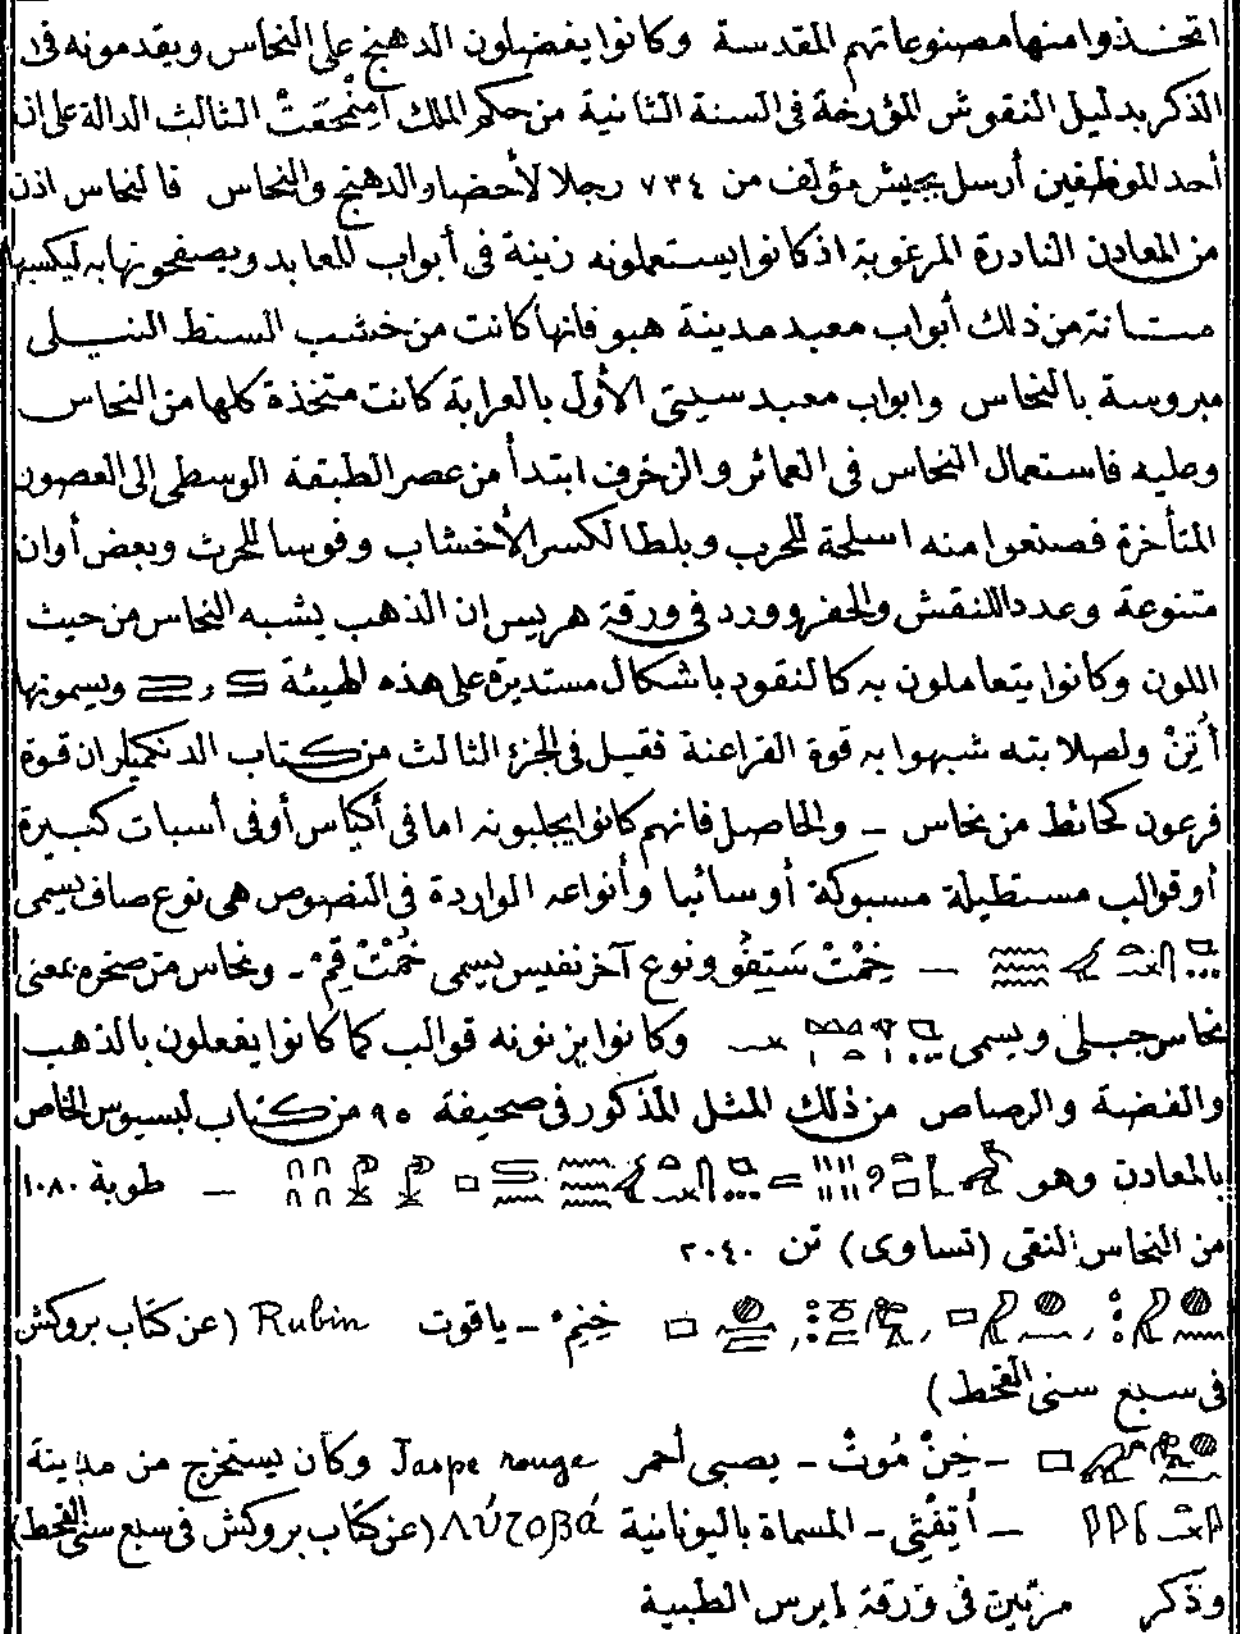 اتخـذوا منها مصنوعاتهم المقدسة وكانوا يفضلون الدهنج على النحاس ويقدمونه فى
الذكر بدليل النقوش المؤرخة فى السنة الثانية من حكم الملك اَمِنْمحَعَتْ الثالث الدالة على ان
أحد الموظفين أرسل بجيش مؤلف من ٧٣٤ رجلا لأحضار الدهنج والنحاس فالنحاس اذن
من المعادن النادرة المرغوبة اذ كانوا يستعملونه زينة فى أبواب المعابد ويصفحونها به ليكسبها
متـانة من ذلك أبواب معبد مدينة هبو فانها كانت من خشب السنط النيـلى
مبروسة بالنحاس وابواب معبد سيتى الأول بالعرابة كانت متخذة كلها من النحاس
وعليه فاستعمال النحاس فى العمائر والزخرف ابتدأ من عصر الطبقة الوسطى إلى العصور
المتأخرة فصنعوا منه اسلحة للحرب وبلطا لكسر الأخشاب وفوسا للحرث وبعض أوان
متنوعة وعددا للنقش والحفر وورد فى ورقة هريس ان الذهب يشبه النحاس من حيث
اللون وكانوا يتعاملون به كالنقود باشكال مستديرة على هذه الهيئة و ويسمونها
أُتِنْ ولصلابته شبهوا به قوة الفراعنة فقيل فى الجزء الثالث من كتاب الدنكميلر ان قوة
فرعون كحائط من نحاس - والحاصل فانهم كانوا يجلبونه اما فى أكياس أو فى أسبات كبيرة
أو قوالب مستطيلة مسبوكة أو سائبا وأنواعه الواردة فى النصوص هى نوع صاف يسمى
— خِمْتْ سَتِفُو ونوع آخر نفيس يسمى خُمْتْ قِمْ - ونحاس من صخره بمعنى
نحاس جبلى ويسمى وكانوا يزنونه قوالب كما كانوا يفعلون بالذهب
والفضة والرصاص من ذلك المثل المذكور فى صحيفة ٩٥ من كتاب لبسيوس الخاص
بالمعادن وهو = — طوبة ١٠٨٠
من النحاس النقى (تساوى) تن ٢٠٤٠
خِنِمْ - ياقوت Rubin (عن كتاب بروكش
فى سبع سنى القحط)
- خِنْ مُوتْ - يصبى أحمر Jaspe rouge وكان يستخرج من مدينة
— أَتِفْتِى - المسماة باليونانية (عن كتاب بروكش فى سبع سنى القحط)
وذكر مرتين فى ورقة إبرس الطبية